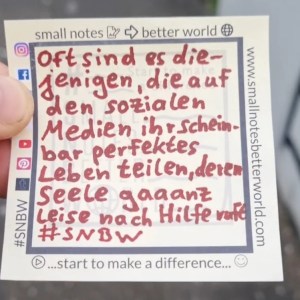 small notes better world
Oft sind es die-
jenigen, die auf
den sozialen
Medien ihr schein-
bar perfektes
Leben teilen, deren
Seele gaaanz
leise nach Hilfe ruft
#SNBW
...start to make a difference...
#SNBW
www.smallnotesbetterworld.com